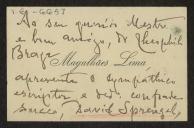 Ao seu querido Mestre
e bom amigo, Dr Theophilo
Braga
Magalhães Lima
apresenta o sympathico
escriptor e seu confrade
David Sprengel